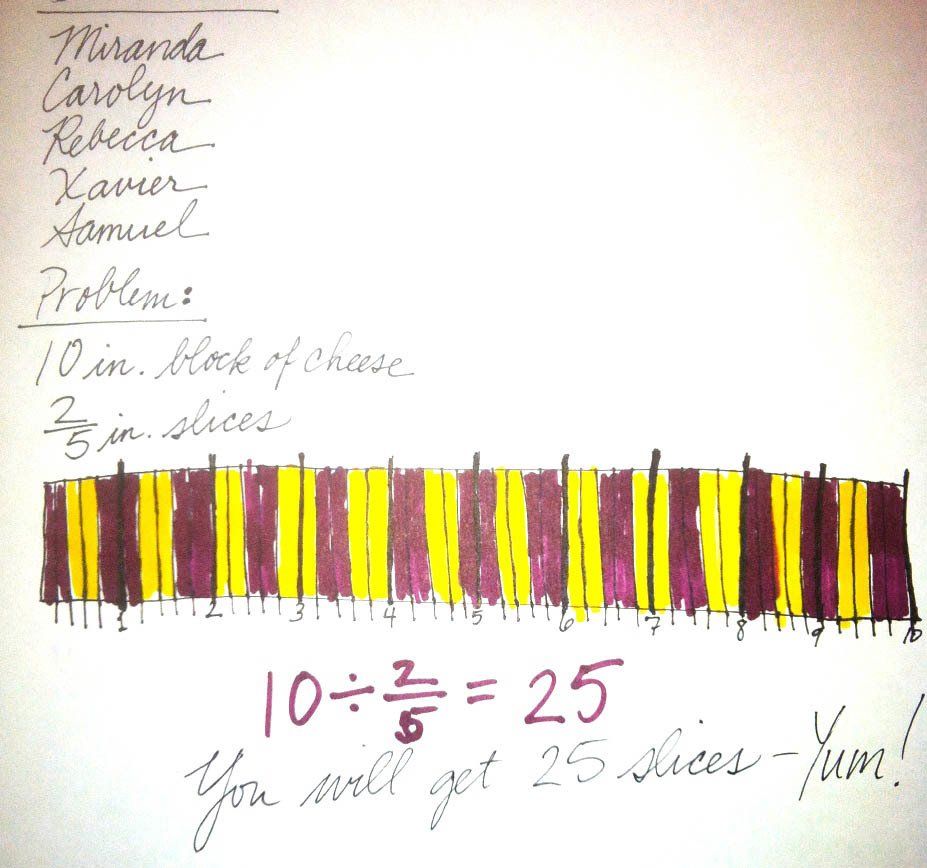 Miranda
Carolyn
Rebecca
Xavier
Samuel
Problem:
10 in. block of cheese
2/5 in. slices
1 2 3 4 5 6 7 8 9 10
10 ÷ 2/5 = 25
You will get 25 slices – Yum!